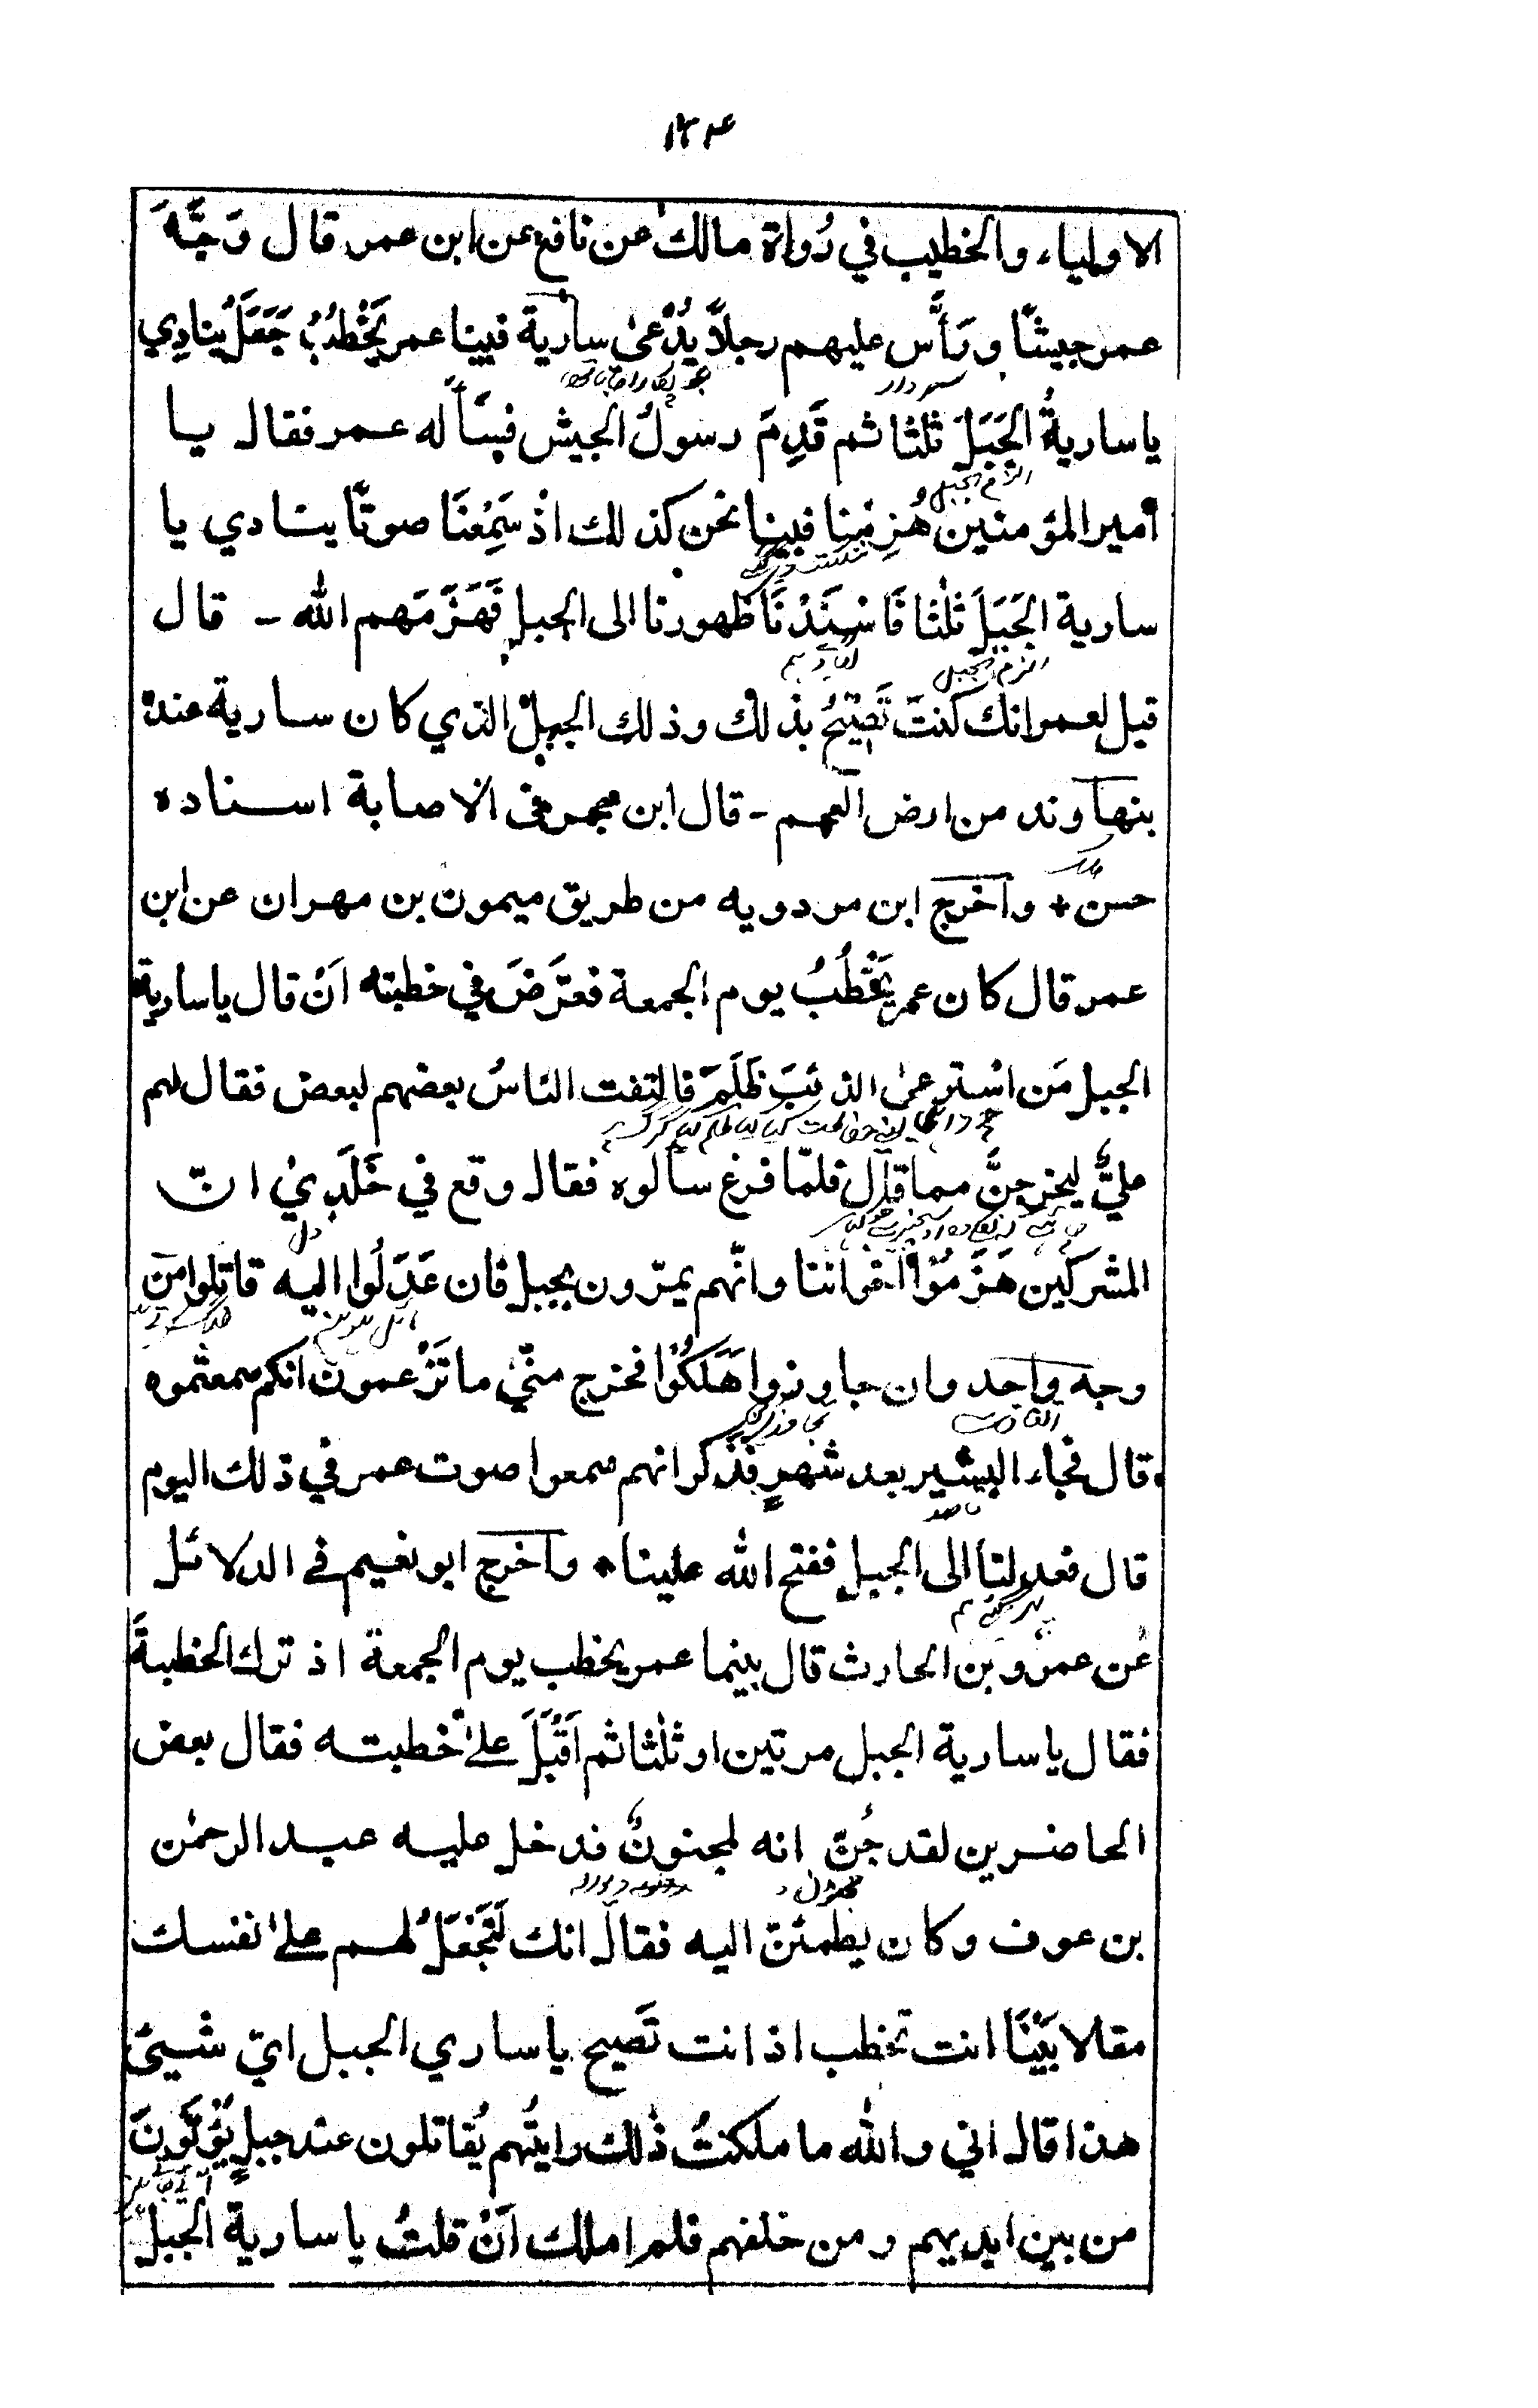 ١٢٤
الاولياء والخطيب في رُواة مالك عن نافع عن ابن عمر قال وَجَّهَ
عمر جيشًا ورَأَّس عليهم رجلاً يُدْعىٰ سارية فبينا عمر يَخْطُبُ جَعَلَ ينادِي
سردار
يا ساريةُ الجَبَلَ ثلثا ثم قَدِمَ رسولُ الجيش فسَأَله عمر فقال يا
الزم الجبل
أمير المؤمنين هُزِمْنا فبينا نحن كذلك اذ سَمِعْنَا صوتًا ينادي يا
سارية الجَبَلَ ثلٰثا فَاسْنَدْنَا ظهورنا الى الجبل فَهَزَمَهم الله - قال
الزم الجبل
قيل لعمر انك كنتَ تَصِيْحُ بذلك وذلك الجبل الذي كان سارية عنده
بنهاوند من ارض العجم - قال ابن حجر فى الاصابة اسناده
حسن + وآخرج ابن مردويه من طريق ميمون بن مهران عن ابن
عمر قال كان عمر يَخْطُبُ يوم الجمعة فعَرَضَ في خطبته اَنْ قال يا سارية
الجبل مَن اسْترعىٰ الذئبَ ظَلَمَ فالتفت الناسُ بعضهم لبعض فقال لهم
عليٌّ ليخرجنَّ مما قال فلمّا فرغ سألوه فقال وقع في خَلَدِيْ انّ
دل
المشركين هَزَمُوْا اخواننا وانّهم يمرّون بجبل فان عَدَلُوا اليه قاتلوا من
وجه واحد وان جاوزوا هَلَكُوْا فخرج منّيْ ما تَزْعمون انكم سمعتموه
قال فجاء البشير بعد شهرٍ فذكر انهم سمعوا صوت عمر في ذلك اليوم
قاصد
قال فعدلنا الى الجبل ففتح الله علينا + وآخرج ابو نعيم في الدلائل
عن عمرو بن الحارث قال بينما عمر يخطب يوم الجمعة اذ ترك الخطبةَ
فقال يا سارية الجبل مرتين او ثلٰثا ثم اَقْبَلَ علىٰ خطبته فقال بعض
الحاضرين لقد جُنّ انه لمجنونٌ فدخل عليه عبد الرحمٰن
بن عوف وكان يطمئنّ اليه فقال انك لَتَجْعَلُ لهم علىٰ نفسك
مقالا بَيْنَا انت تخطب اذ انت تَصيح يا ساري الجبل ايّ شيئ
هذا قال اني والله ما ملكتُ ذٰلك رايتُهم يُقاتلون عند جبلٍ يُؤْتَوْنَ
من بين ايديهم ومن خلفهم فلم املك اَنْ قلتُ يا سارية الجبلَ